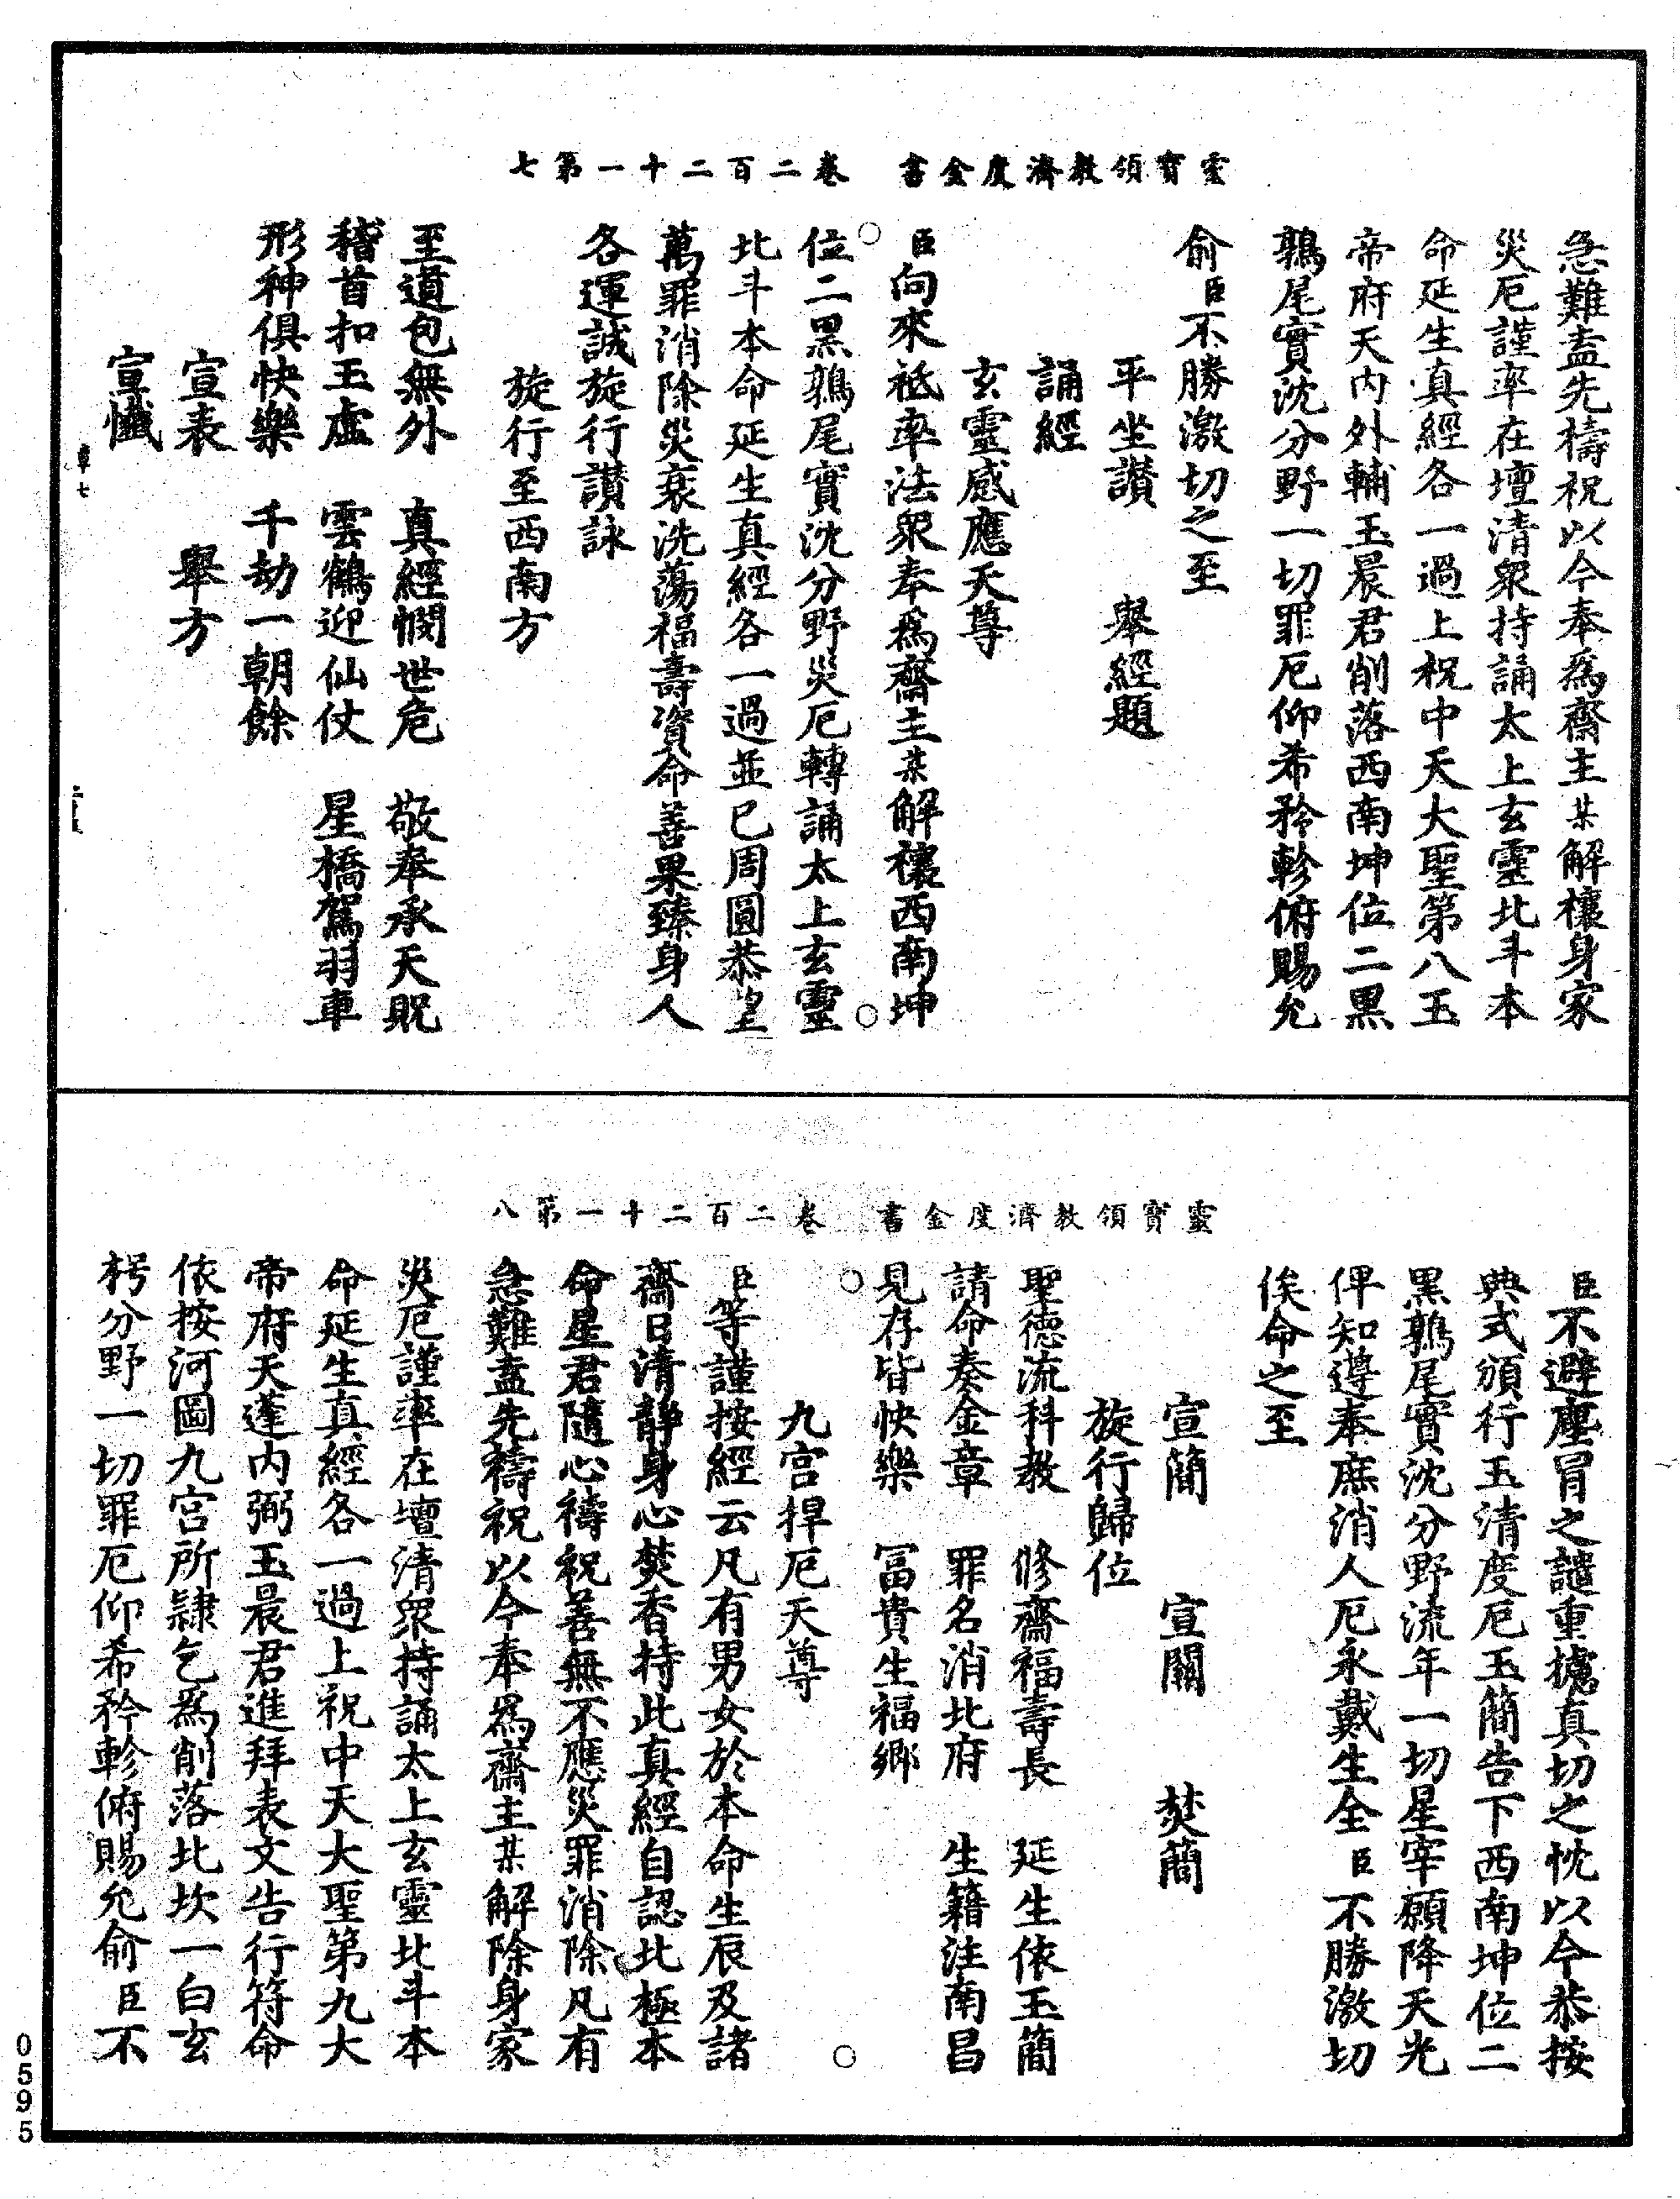 靈寶領教濟度金書　卷二百二十一第七
急難盍先禱祝以今奉爲齋主某解禳身家
災厄謹率在壇清眾持誦太上玄靈北斗本
命延生真經各一過上祝中天大聖第八玉
帝府天内外輔玉晨君削落西南坤位二黑
鶉尾實沈分野一切罪厄仰希矜軫俯賜允
俞臣不勝激切之至
平坐讃　舉經題
誦經
玄靈感應天尊
臣向來祗率法眾奉爲齋主某解禳西南坤
位二黑鶉尾實沈分野災厄轉誦太上玄靈
北斗本命延生真經各一過並已周圓恭望
萬罪消除災衰洗蕩福壽資命善果臻身人
各運誠旋行讃詠
旋行至西南方
至道包無外　真經憫世危　敬奉承天貺
稽首扣玉虛　雲鶴迎仙仗　星橋駕羽車
形神俱快樂　千劫一朝餘
宣表　舉方
宣懺
靈寶領教濟度金書　卷二百二十一第八
臣不避塵冒之譴重攄真切之忱以今恭按
典式頒行玉清度厄玉簡告下西南坤位二
黑鶉尾實沈分野流年一切星宰願降天光
俾知遵奉庶消人厄永戴生全臣不勝激切
俟命之至
宣簡　宣關　焚簡
旋行歸位
聖德流科教　修齋福壽長　延生依玉簡
請命奏金章　罪名消北府　生籍注南昌
見存皆快樂　冨貴生福鄉
九宮捍厄天尊
臣等謹按經云凡有男女於本命生辰及諸
齋日清靜身心焚香持此真經自認北極本
命星君隨心禱祝善無不應災罪消除凡有
急難盍先禱祝以今奉爲齋主某解除身家
災厄謹率在壇清眾持誦太上玄靈北斗本
命延生真經各一過上祝中天大聖第九大
帝府天蓬内弼玉晨君進拜表文告行符命
依按河圖九宮所隸乞爲削落北坎一白玄
枵分野一切罪厄仰希矜軫俯賜允俞臣不
0595